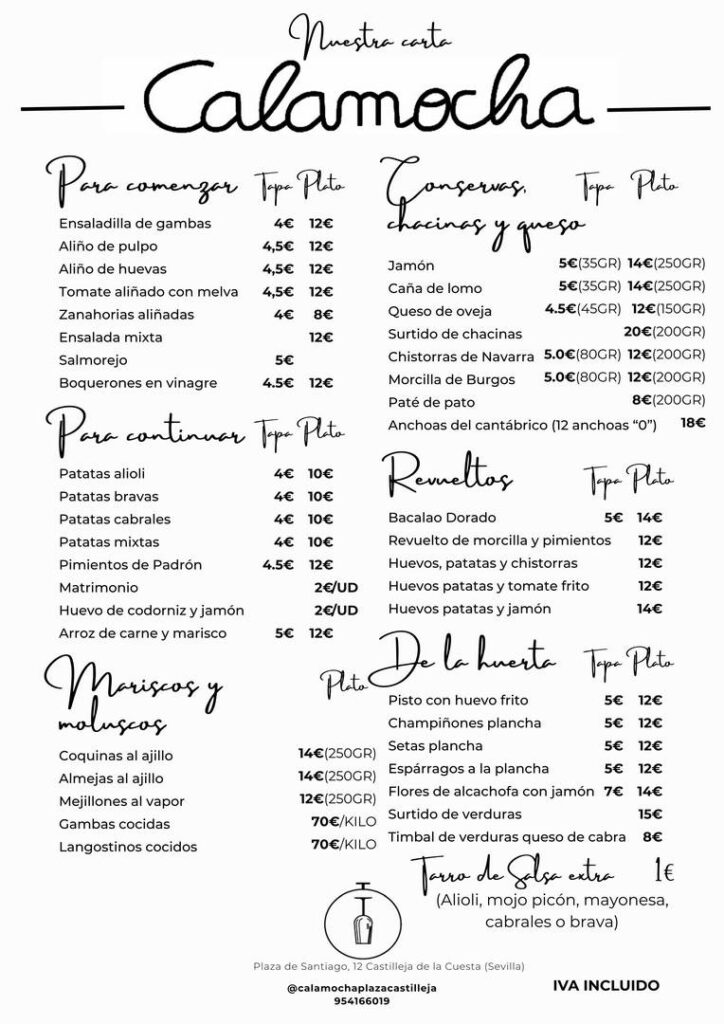 Nuestra carta
Calamocha
Para comenzar Tapa Plato
Ensaladilla de gambas 4€ 12€
Aliño de pulpo 4,5€ 12€
Aliño de huevas 4,5€ 12€
Tomate aliñado con melva 4,5€ 12€
Zanahorias aliñadas 4€ 8€
Ensalada mixta 12€
Salmorejo 5€
Boquerones en vinagre 4.5€ 12€
Para continuar Tapa Plato
Patatas alioli 4€ 10€
Patatas bravas 4€ 10€
Patatas cabrales 4€ 10€
Patatas mixtas 4€ 10€
Pimientos de Padrón 4.5€ 12€
Matrimonio 2€/UD
Huevo de codorniz y jamón 2€/UD
Arroz de carne y marisco 5€ 12€
Mariscos y Plato
moluscos
Coquinas al ajillo 14€(250GR)
Almejas al ajillo 14€(250GR)
Mejillones al vapor 12€(250GR)
Gambas cocidas 70€/KILO
Langostinos cocidos 70€/KILO
Conservas, Tapa Plato
chacinas y queso
Jamón 5€(35GR) 14€(250GR)
Caña de lomo 5€(35GR) 14€(250GR)
Queso de oveja 4.5€(45GR) 12€(150GR)
Surtido de chacinas 20€(200GR)
Chistorras de Navarra 5.0€(80GR) 12€(200GR)
Morcilla de Burgos 5.0€(80GR) 12€(200GR)
Paté de pato 8€(200GR)
Anchoas del cantábrico (12 anchoas “0”) 18€
Revueltos Tapa Plato
Bacalao Dorado 5€ 14€
Revuelto de morcilla y pimientos 12€
Huevos, patatas y chistorras 12€
Huevos patatas y tomate frito 12€
Huevos patatas y jamón 14€
De la huerta Tapa Plato
Pisto con huevo frito 5€ 12€
Champiñones plancha 5€ 12€
Setas plancha 5€ 12€
Espárragos a la plancha 5€ 12€
Flores de alcachofa con jamón 7€ 14€
Surtido de verduras 15€
Timbal de verduras queso de cabra 8€
Tarro de Salsa extra 1€
(Alioli, mojo picón, mayonesa,
cabrales o brava)
Plaza de Santiago, 12 Castilleja de la Cuesta (Sevilla)
@calamochaplazacastilleja
954166019
IVA INCLUIDO